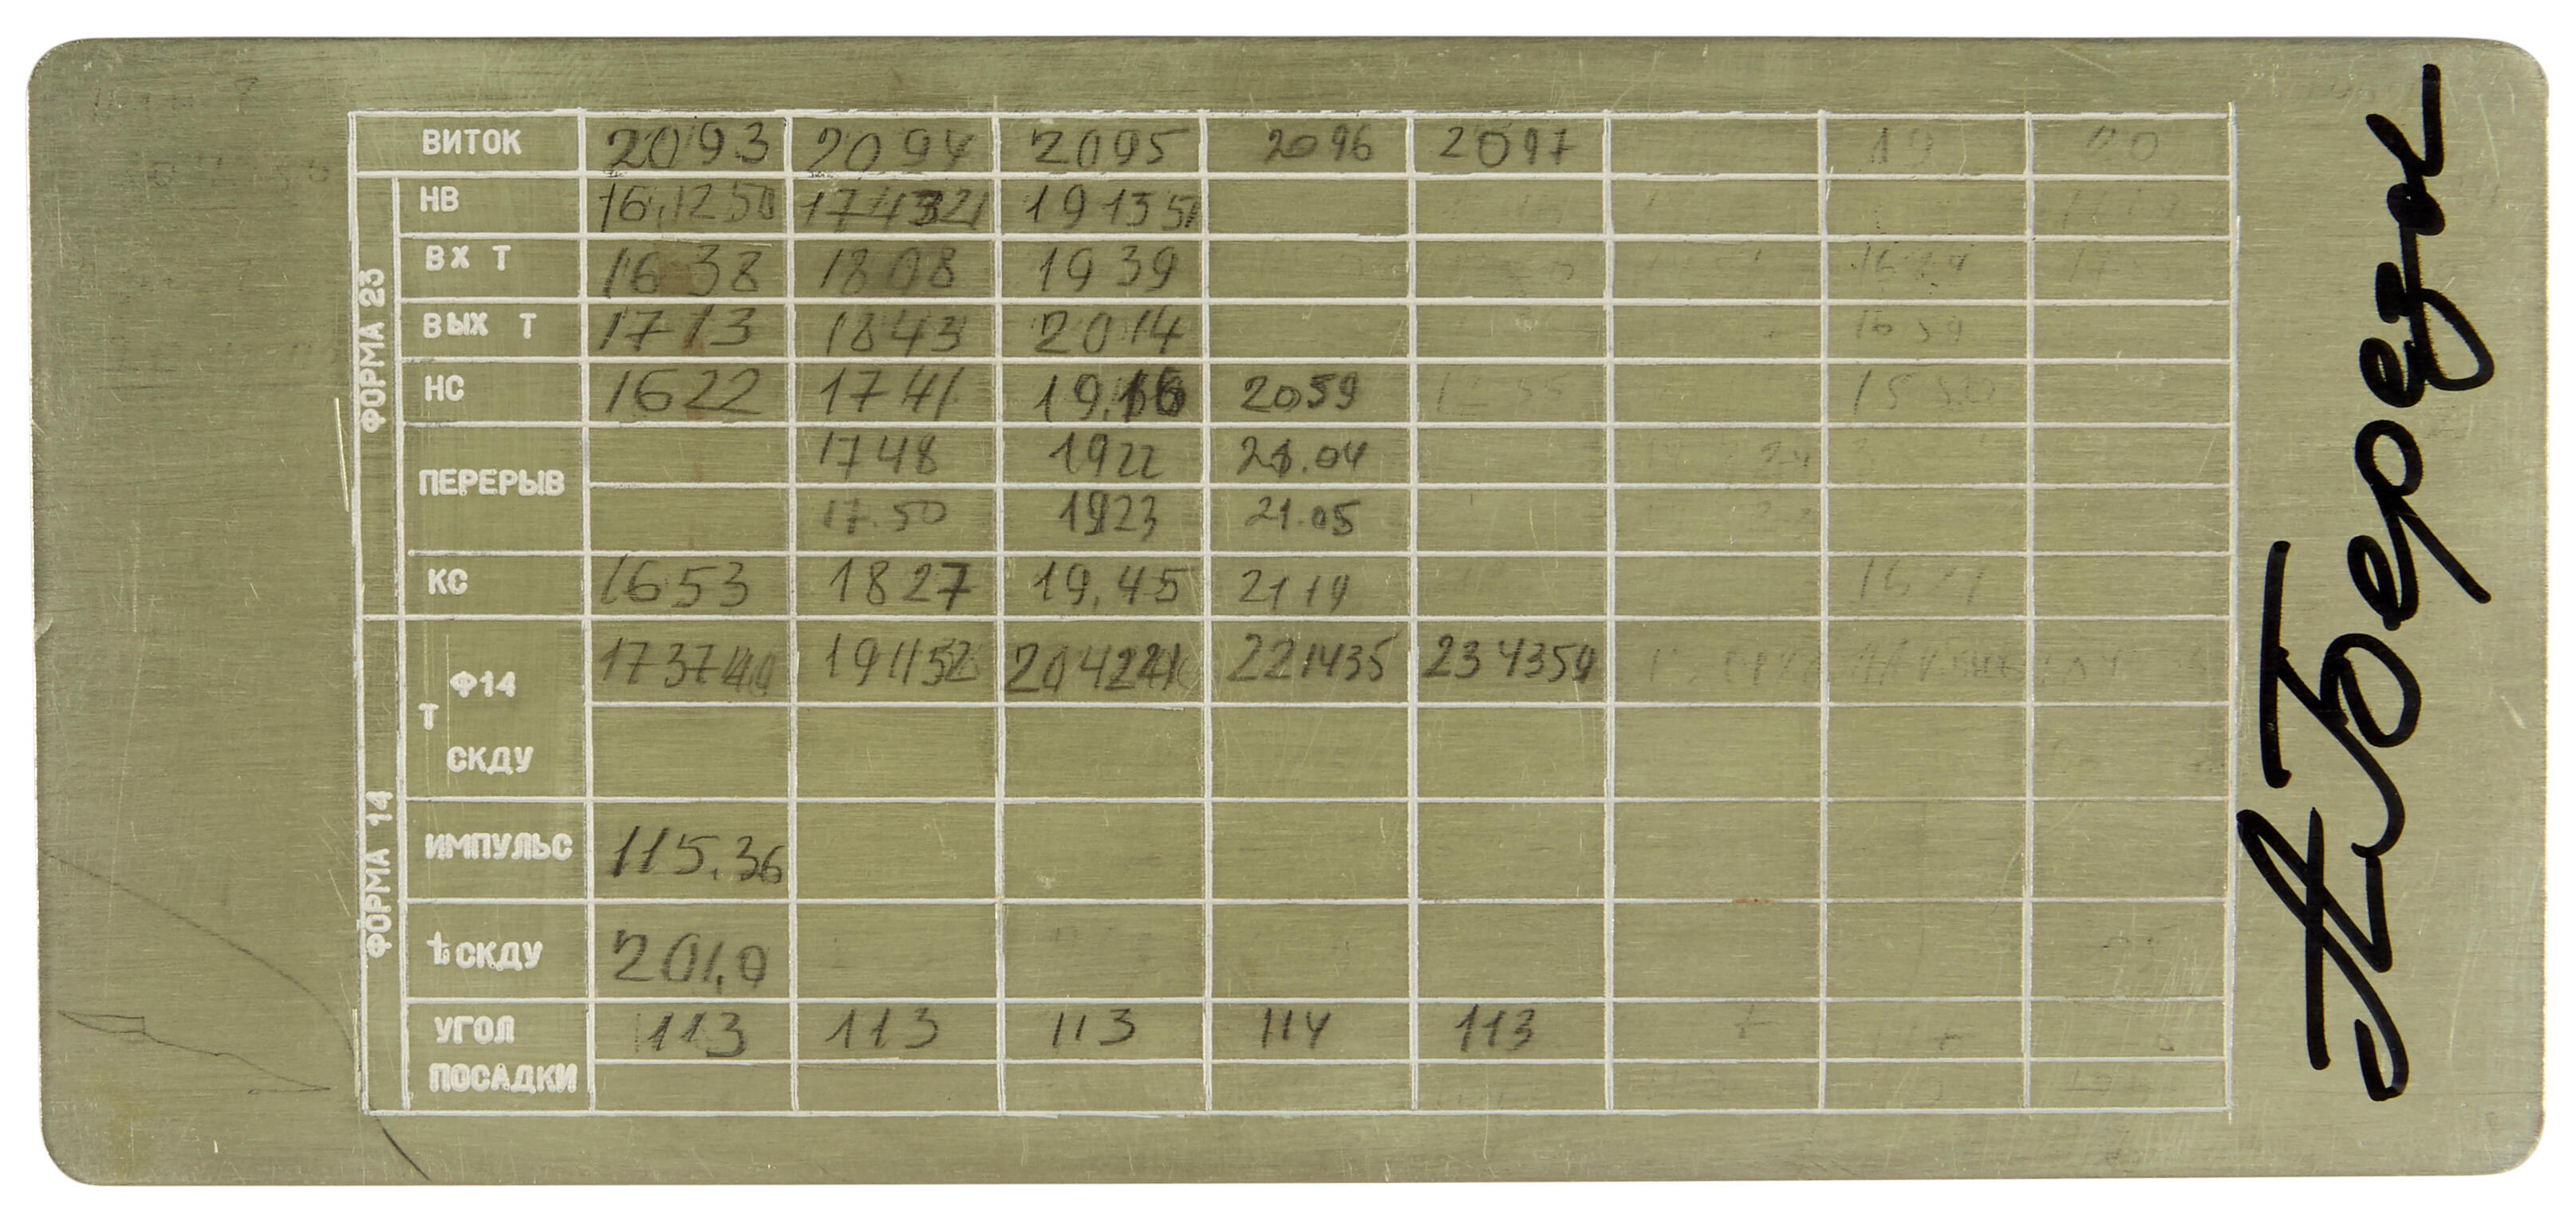 ВИТОК 2093 2094 2095 2096 2097 19 20
ФОРМА 23
НВ 16.1250 174321 191351
ВХ Т 1638 1808 1939
ВЫХ Т 1713 1843 2014
НС 1622 1741 19.16 2059
ПЕРЕРЫВ 1748 1922 21.04
17.50 1923 21.05
КС 1653 1827 19.45 2119
ФОРМА 14
Т Ф14 191152 221435 234359
СКДУ
ИМПУЛЬС 115.36
t СКДУ 201,0
УГОЛ 113 113 113 114 113
ПОСАДКИ
А. Березов